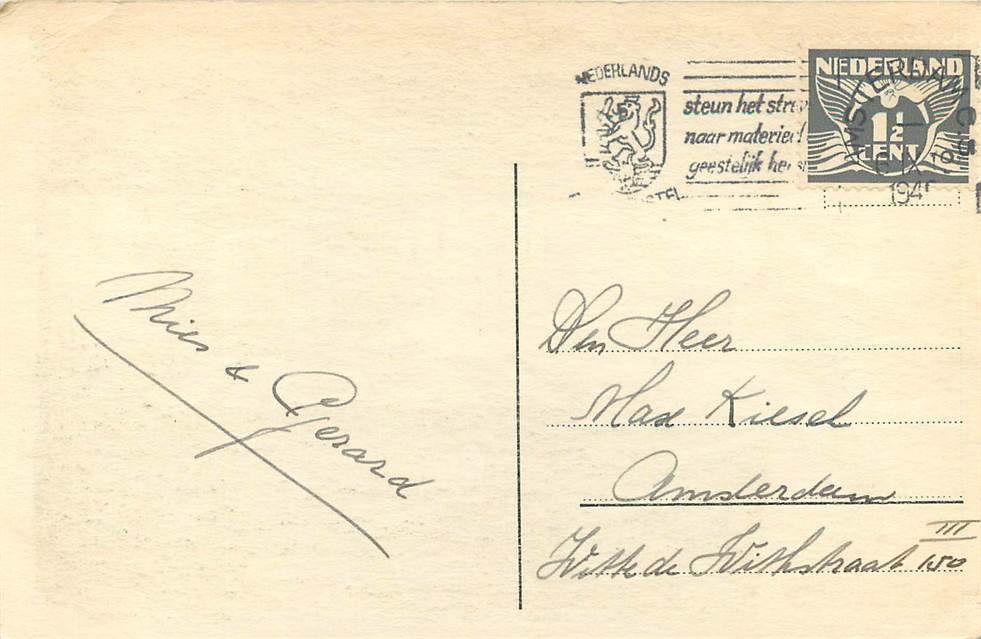 Mies & Gerard
NEDERLANDS
steun het stre
naar materieel
geestelijk her
NEDERLAND
1½
CENT
AMSTERDAM C.S.
IX
194
Den Heer
Max Kiesel
Amsterdam
Witte de Withstraat 150 III